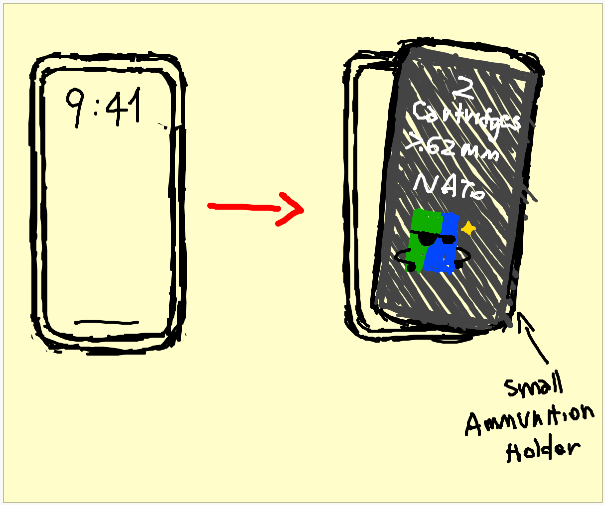 9:41
2
Cartridges
7.62mm
NATO
Small
Ammunition
Holder